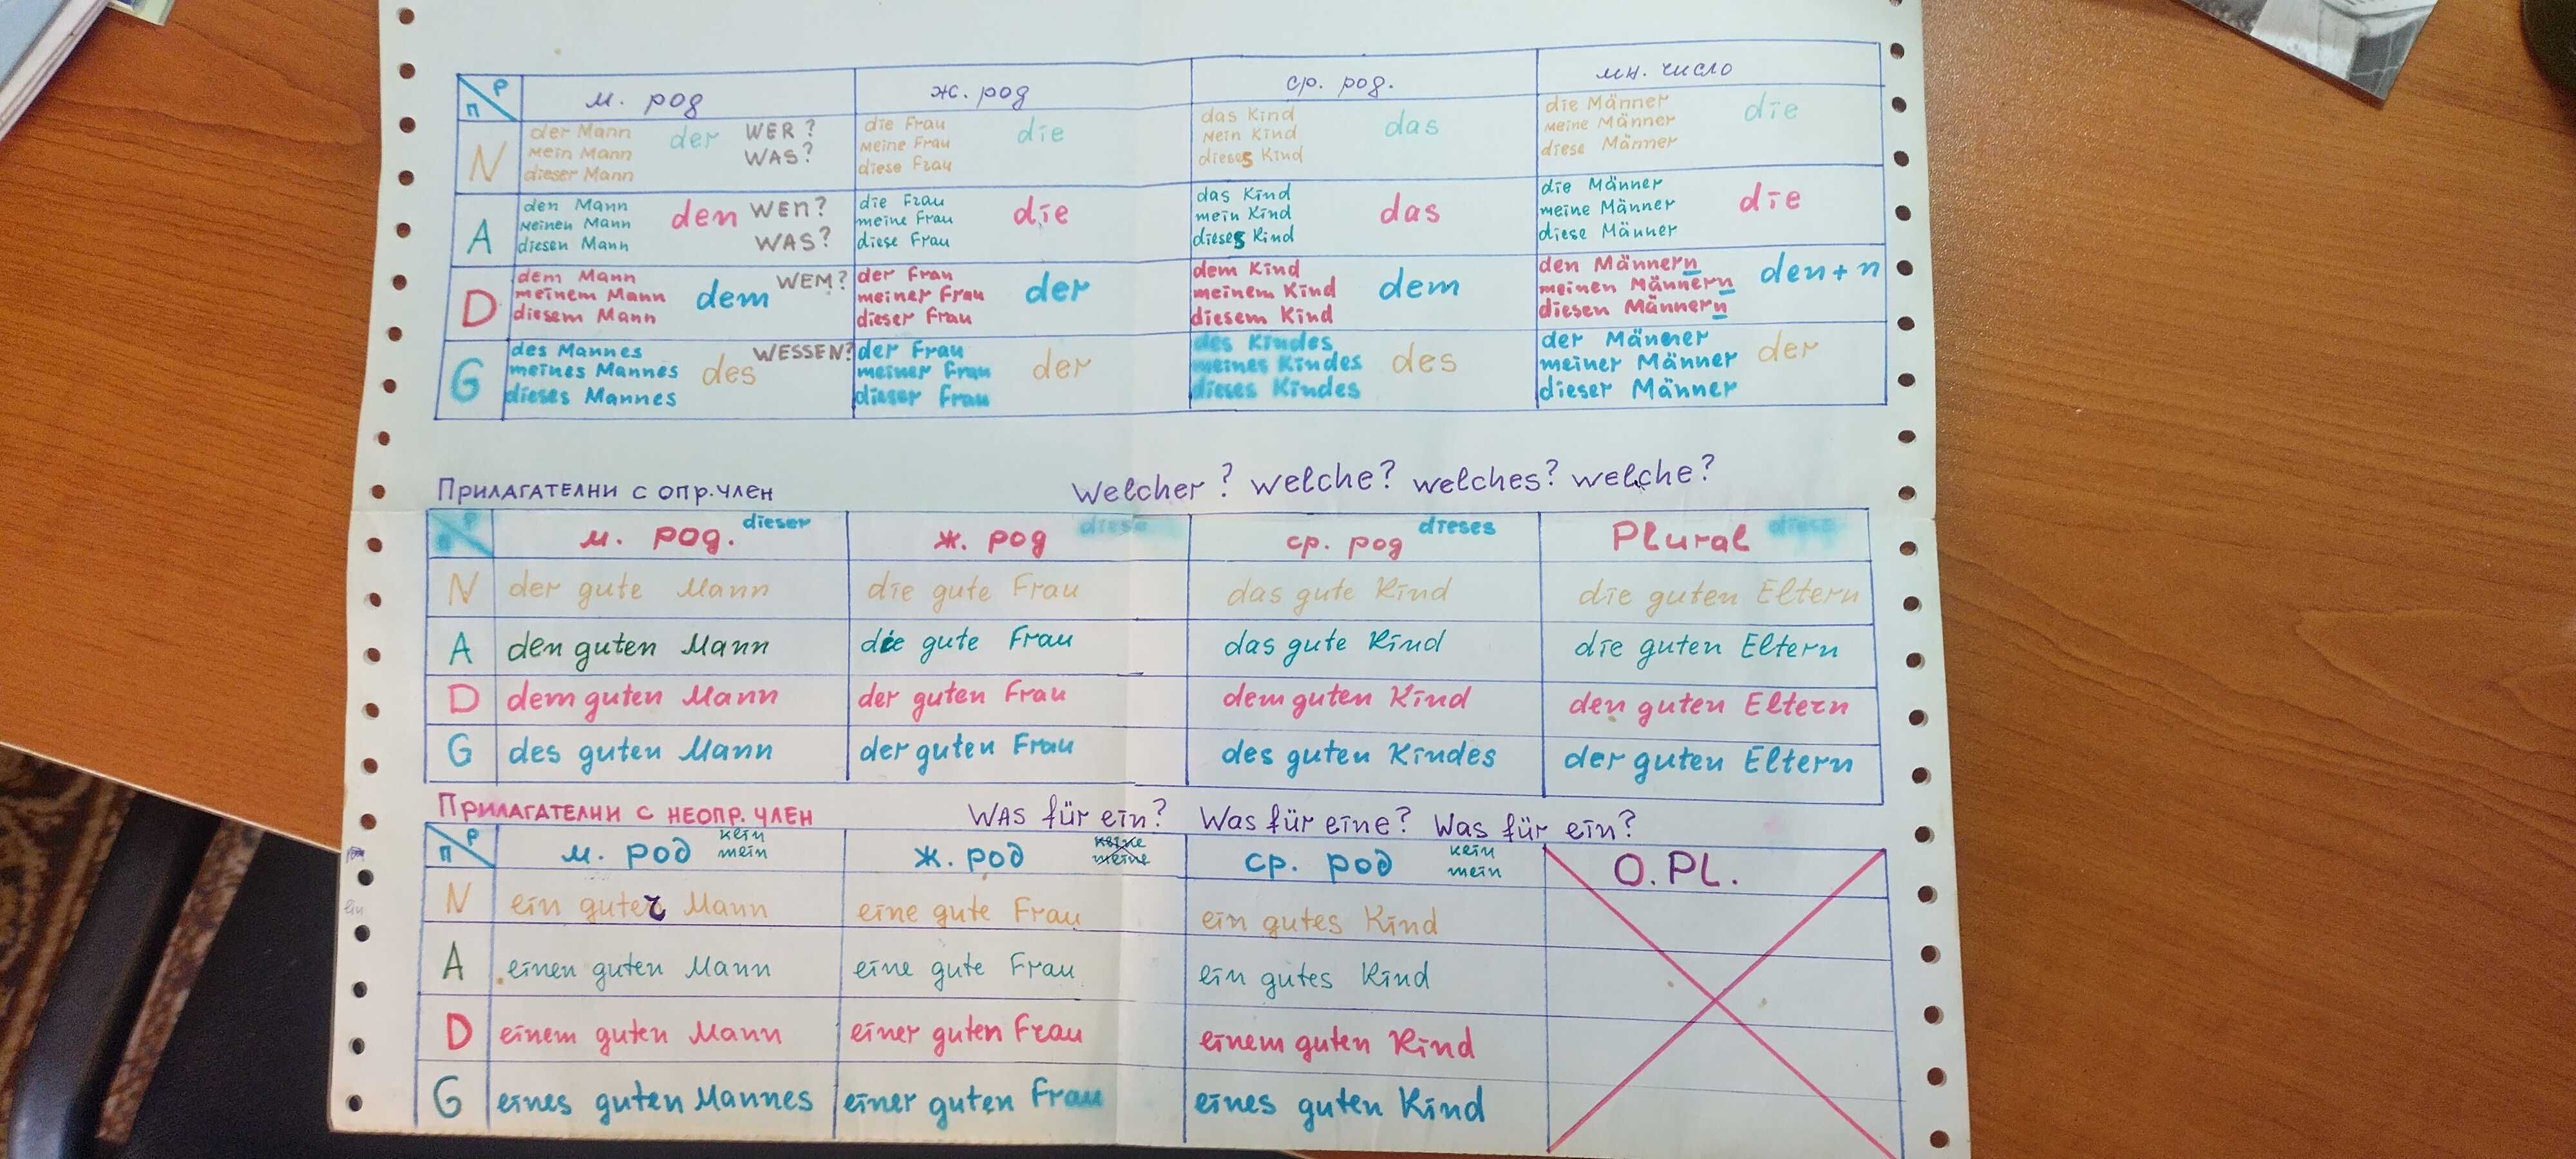 П Р м. род ж. род ср. род. мн. число
N der Mann der WER? die Frau die das Kind das die Männer die
mein Mann WAS? meine Frau mein Kind meine Männer
dieser Mann diese Frau dieses Kind diese Männer
A den Mann den WEN? die Frau die das Kind das die Männer die
meinen Mann meine Frau mein Kind meine Männer
diesen Mann WAS? diese Frau dieses Kind diese Männer
D dem Mann dem WEM? der Frau der dem Kind dem den Männern den + n
meinem Mann meiner Frau meinem Kind meinen Männern
diesem Mann dieser Frau diesem Kind diesen Männern
G des Mannes des WESSEN? der Frau der des Kindes des der Männer der
meines Mannes meiner Frau meines Kindes meiner Männer
dieses Mannes dieser Frau dieses Kindes dieser Männer
Прилагателни с опр. член Welcher? welche? welches? welche?
Р м. род. dieser ж. род diese ср. род dieses Plural diese
N der gute Mann die gute Frau das gute Kind die guten Eltern
A den guten Mann die gute Frau das gute Kind die guten Eltern
D dem guten Mann der guten Frau dem guten Kind den guten Eltern
G des guten Mann der guten Frau des guten Kindes der guten Eltern
Прилагателни с неопр. член Was für ein? Was für eine? Was für ein?
П Р м. род kein mein ж. род keine meine ср. род kein mein O. PL.
N ein guter Mann eine gute Frau ein gutes Kind
A einen guten Mann eine gute Frau ein gutes Kind
D einem guten Mann einer guten Frau einem guten Kind
G eines guten Mannes einer guten Frau eines guten Kind